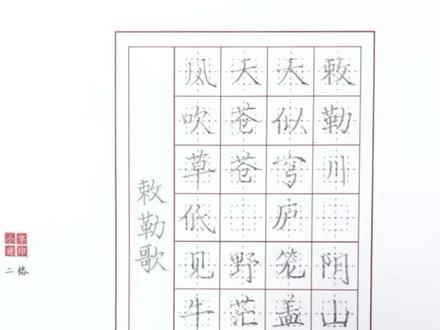 敕勒川 阴山
天似穹庐笼盖
天苍苍 野茫
风吹草低见牛
敕勒歌